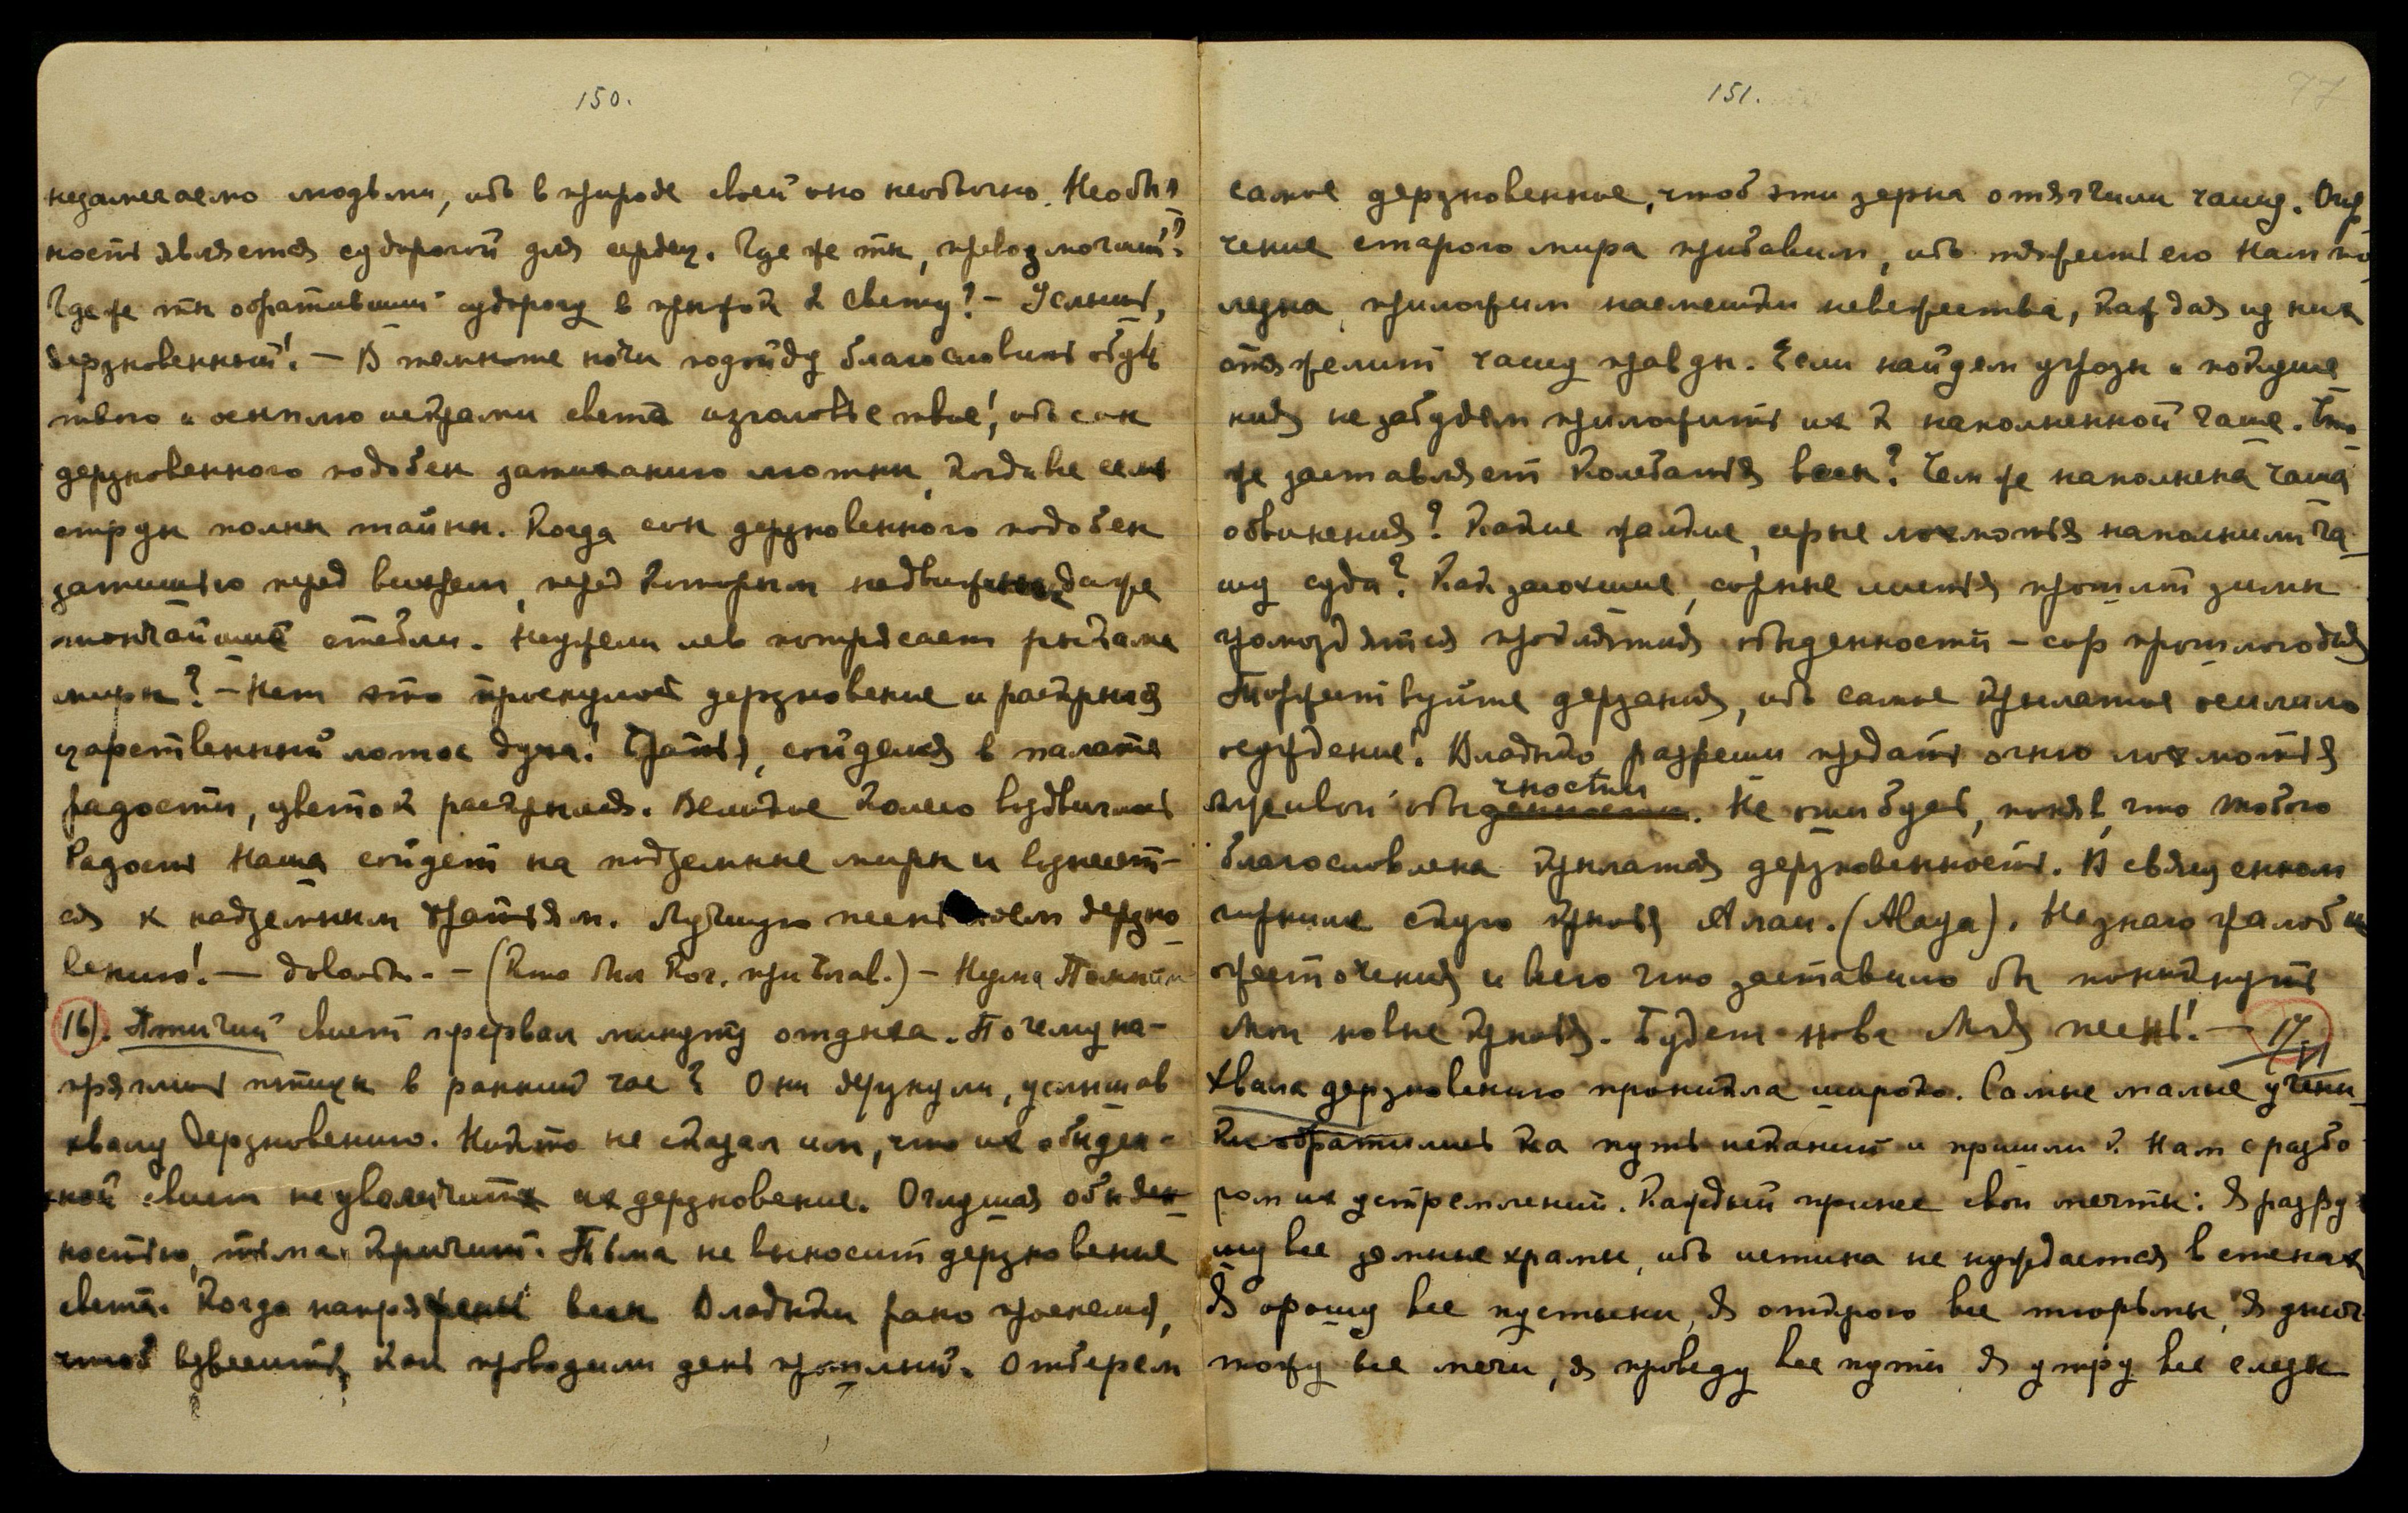 150.
незамечаемо людьми, ибо в природе своей оно необычно. Необы
ность является судорогой для сердец. Где же ты, превозмогший?
Где же ты обративший судорогу в прыжок к свету? – Услышь,
дерзновенный! – В темноте ночи подойду благословить обувь
твою и осыплю искрами света изголовье твое!, ибо сон
дерзновенного подобен затиханию лютни, когда все семь
струн полны тайны. Когда сон дерзновенного подобен
затишью перед вихрем, перед которым недвижны даже
тончайшие стебли. Неужели лев потрясает рыками
миры? – Нет это проснулось дерзновение и раскрылся
царственный лотос духа! Братья, сойдемся в палате
радости, цветок раскрылся. Великое колесо воздвиглось
Радость Наша сойдет на подземные миры и вознесет-
ся к надземным братьям. Лучшую песнь поем дерзно
вению! – довольно. – (Кто был Кор. при Елав.) – Нума Помпил
16). Птичий свист прервал минуту отдыха. Почему на-
пряглись птицы в ранний час? Они дрогнули, услышав
хвалу дерзновению. Никто не сказал им, что их обыден-
ной свист не увеличит их дерзновение. Огидшая обыден
ностью, тьма кричит. Тьма не выносит дерзновение
света. Когда напряжены весы Владыки рано проснемся,
чтоб взвесить, как проводили день прошлый. Отберем
151.
77
самое дерзновенное, чтоб эти зерна отягчили чашу. Огор
чение старого мира прибавим, ибо тяжесть его Нам по
лезна, приложим насмешки невежества, каждая из них
отяжелит чашу правды. Если найдем угрозы и покуше
ния не забудем приложить их к наполненной чаше. Что
же заставляет колебаться весы? Чем же наполнена чаша
обвинения? Какие жалкие, серые лохмотья наполнили ча
шу суда? Как засохшие, сорные листья прошлой зимы
громоздятся проклятия обыденности – сор прошлогодия
Торжествуйте дерзания, ибо самое крылатое осилило
осуждение! Владыко разреши предать огню лохмотья
лживой обыденности чности. Не ошибусь, поняв, что Тобою
благословлена крылатая дерзновенность. В священном
горниле скую крылья Алаи. (Alaya). Не знаю жалоб и
ожесточения и всего что заставило бы поникнуть
Мои новые крылья. Будет нова Моя песнь! – 17/VI
Хвала дерзновению проникла широко. Самые малые учени
ки обратились на путь исканий и пришли к Нам с разбо
ром их устремлений. Каждый принес свои мечты: Я разру
шу все земные храмы, ибо истина не нуждается в стенах
Я орошу все пустыни, Я открою все тюрьмы, Я унич
тожу все мечи, Я проведу все пути Я утру все слезы